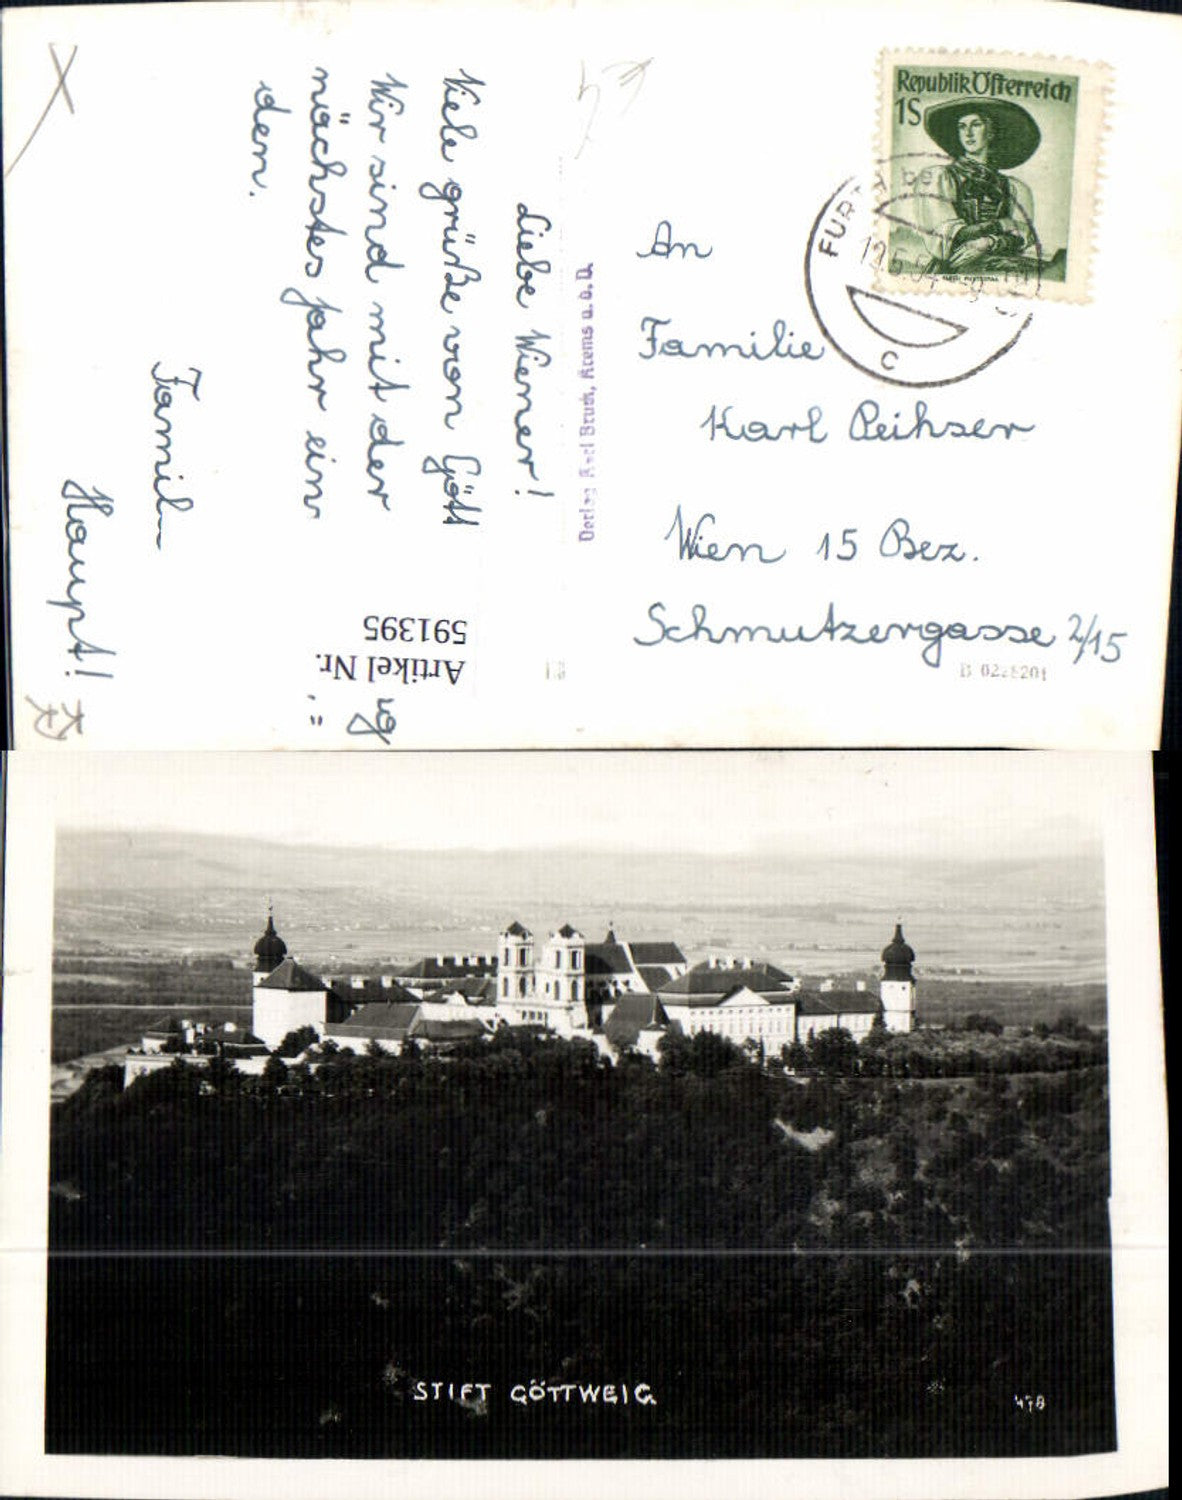 Republik Österreich
1S
FURTH bei
12.5.54
C
An
Familie
Karl Peihser
Wien 15 Bez.
Schmutzergasse 2/15
B 0228201
Verlag Karl Bruch, Krems a. d. D.
Liebe Wiener!
Viele grüße von Gött
Wir sind mit der
nächstes jahr ein
den.
Famil
Haupt!
Artikel Nr.
591395
STIFT GÖTTWEIG
478